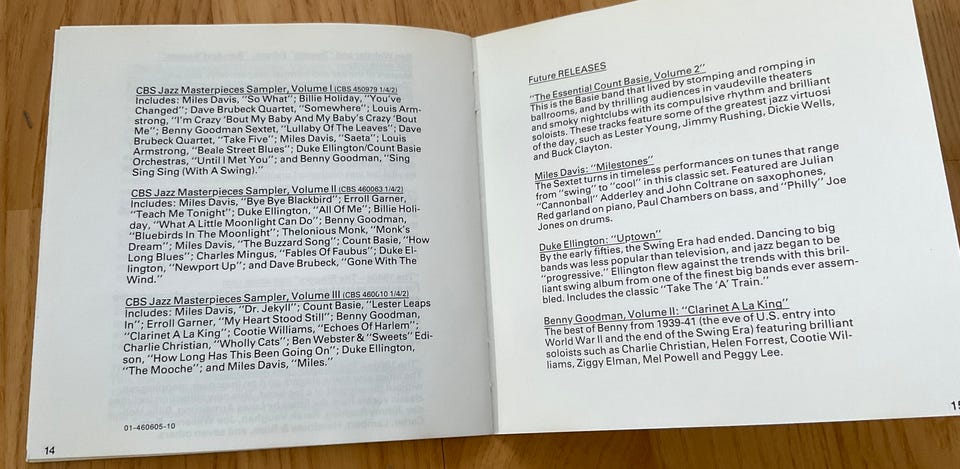 CBS Jazz Masterpieces Sampler, Volume I (CBS 450979 1/4/2)
Includes: Miles Davis, "So What"; Billie Holiday, "You've
Changed"; Dave Brubeck Quartet, "Somewhere"; Louis Arm-
strong, "I'm Crazy 'Bout My Baby And My Baby's Crazy 'Bout
Me"; Benny Goodman Sextet, "Lullaby Of The Leaves"; Dave
Brubeck Quartet, "Take Five"; Miles Davis, "Saeta"; Louis
Armstrong, "Beale Street Blues"; Duke Ellington/Count Basie
Orchestras, "Until I Met You"; and Benny Goodman, "Sing
Sing Sing (With A Swing)."
CBS Jazz Masterpieces Sampler, Volume II (CBS 460063 1/4/2)
Includes: Miles Davis, "Bye Bye Blackbird"; Erroll Garner,
"Teach Me Tonight"; Duke Ellington, "All Of Me"; Billie Holi-
day, "What A Little Moonlight Can Do"; Benny Goodman,
"Bluebirds In The Moonlight"; Thelonious Monk, "Monk's
Dream"; Miles Davis, "The Buzzard Song"; Count Basie, "How
Long Blues"; Charles Mingus, "Fables Of Faubus"; Duke El-
lington, "Newport Up"; and Dave Brubeck, "Gone With The
Wind."
CBS Jazz Masterpieces Sampler, Volume III (CBS 460610 1/4/2)
Includes: Miles Davis, "Dr. Jekyll"; Count Basie, "Lester Leaps
In"; Erroll Garner, "My Heart Stood Still"; Benny Goodman,
"Clarinet A La King"; Cootie Williams, "Echoes Of Harlem";
Charlie Christian, "Wholly Cats"; Ben Webster & "Sweets" Edi-
son, "How Long Has This Been Going On"; Duke Ellington,
"The Mooche"; and Miles Davis, "Miles."
01-460605-10
14
Future RELEASES
"The Essential Count Basie, Volume 2"
This is the Basie band that lived by stomping and romping in
ballrooms, and by thrilling audiences in vaudeville theaters
and smoky nightclubs with its compulsive rhythm and brilliant
soloists. These tracks feature some of the greatest jazz virtuosi
of the day, such as Lester Young, Jimmy Rushing, Dickie Wells,
and Buck Clayton.
Miles Davis: "Milestones"
The Sextet turns in timeless performances on tunes that range
from "swing" to "cool" in this classic set. Featured are Julian
"Cannonball" Adderley and John Coltrane on saxophones,
Red garland on piano, Paul Chambers on bass, and "Philly" Joe
Jones on drums.
Duke Ellington: "Uptown"
By the early fifties, the Swing Era had ended. Dancing to big
bands was less popular than television, and jazz began to be
"progressive." Ellington flew against the trends with this bril-
liant swing album from one of the finest big bands ever assem-
bled. Includes the classic "Take The 'A' Train."
Benny Goodman, Volume II: "Clarinet A La King"
The best of Benny from 1939-41 (the eve of U.S. entry into
World War II and the end of the Swing Era) featuring brilliant
soloists such as Charlie Christian, Helen Forrest, Cootie Wil-
liams, Ziggy Elman, Mel Powell and Peggy Lee.